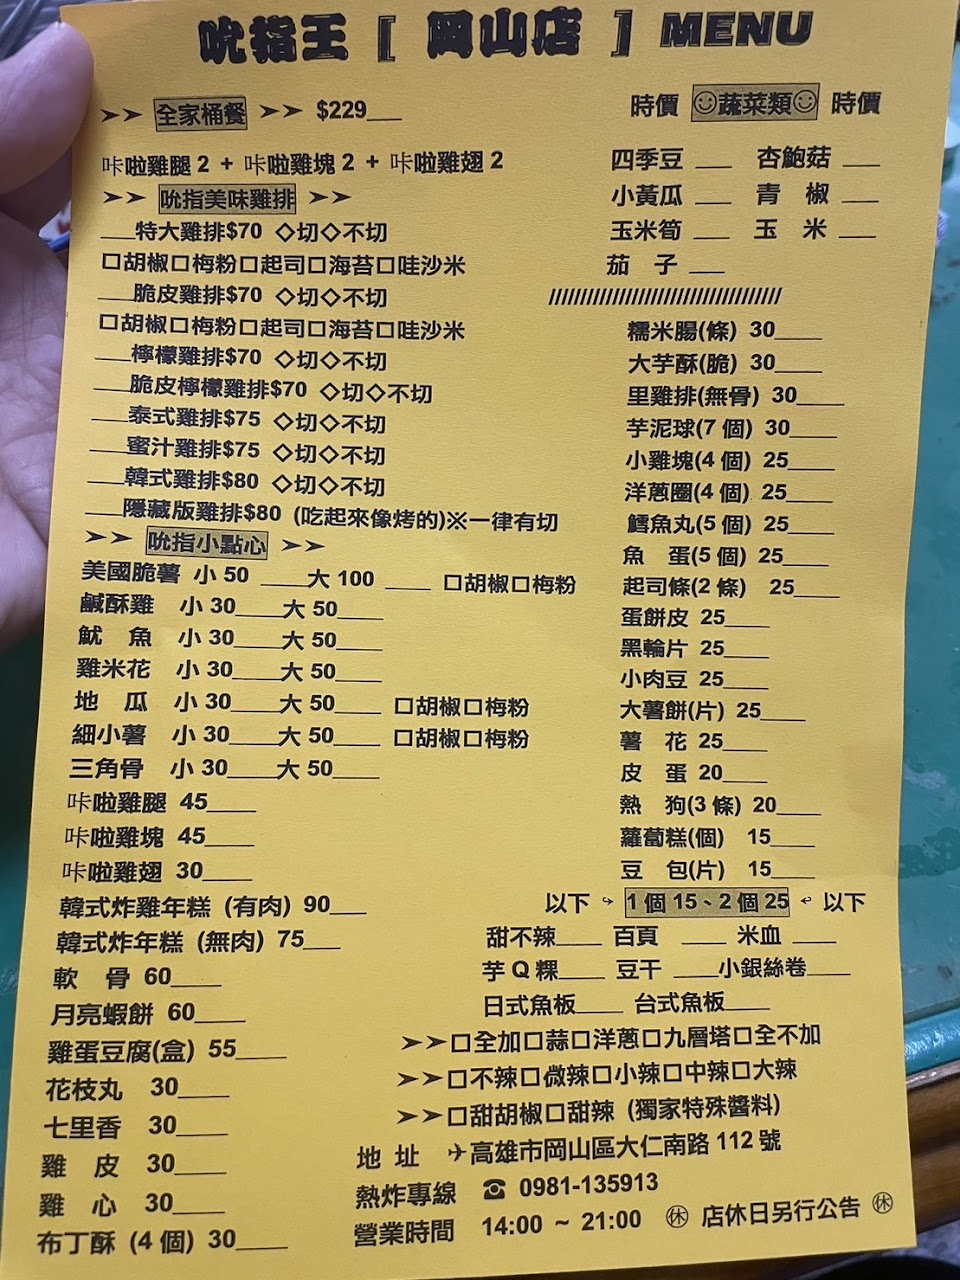 吮指王 [ 岡山店 ] MENU
➢➢ 全家桶餐 ➢➢ $229___
咔啦雞腿 2 + 咔啦雞塊 2 + 咔啦雞翅 2
➢➢ 吮指美味雞排 ➢➢
___特大雞排$70 ◇切◇不切
□胡椒□梅粉□起司□海苔□哇沙米
___脆皮雞排$70 ◇切◇不切
□胡椒□梅粉□起司□海苔□哇沙米
___檸檬雞排$70 ◇切◇不切
___脆皮檸檬雞排$70 ◇切◇不切
___泰式雞排$75 ◇切◇不切
___蜜汁雞排$75 ◇切◇不切
___韓式雞排$80 ◇切◇不切
___隱藏版雞排$80 (吃起來像烤的)※一律有切
➢➢ 吮指小點心 ➢➢
美國脆薯 小 50 ____大 100 ____ □胡椒□梅粉
鹹酥雞 小 30____大 50____
魷 魚 小 30____大 50____
雞米花 小 30____大 50____
地 瓜 小 30____大 50____ □胡椒□梅粉
細小薯 小 30____大 50____ □胡椒□梅粉
三角骨 小 30____大 50____
咔啦雞腿 45____
咔啦雞塊 45____
咔啦雞翅 30____
韓式炸雞年糕 (有肉) 90___
韓式炸年糕 (無肉) 75___
軟 骨 60____
月亮蝦餅 60____
雞蛋豆腐(盒) 55____
花枝丸 30____
七里香 30____
雞 皮 30____
雞 心 30____
布丁酥 (4 個) 30____
時價 ☺蔬菜類☺ 時價
四季豆 ___ 杏鮑菇 ___
小黃瓜 ___ 青 椒 ___
玉米筍 ___ 玉 米 ___
茄 子 ___
////////////////////////////////////
糯米腸(條) 30____
大芋酥(脆) 30____
里雞排(無骨) 30____
芋泥球(7 個) 30____
小雞塊(4 個) 25____
洋蔥圈(4 個) 25____
鱈魚丸(5 個) 25____
魚 蛋(5 個) 25____
起司條(2 條) 25____
蛋餅皮 25____
黑輪片 25____
小肉豆 25____
大薯餅(片) 25____
薯 花 25____
皮 蛋 20____
熱 狗(3 條) 20____
蘿蔔糕(個) 15____
豆 包(片) 15____
以下 ↪ 1 個 15、2 個 25 ↩ 以下
甜不辣____ 百頁 ____ 米血 ____
芋 Q 粿____ 豆干 ____小銀絲卷____
日式魚板____ 台式魚板____
➢➢□全加□蒜□洋蔥□九層塔□全不加
➢➢□不辣□微辣□小辣□中辣□大辣
➢➢□甜胡椒□甜辣 (獨家特殊醬料)
地 址 ✈高雄市岡山區大仁南路 112 號
熱炸專線 ☎ 0981-135913
營業時間 14:00 ~ 21:00 ㊡ 店休日另行公告 ㊡